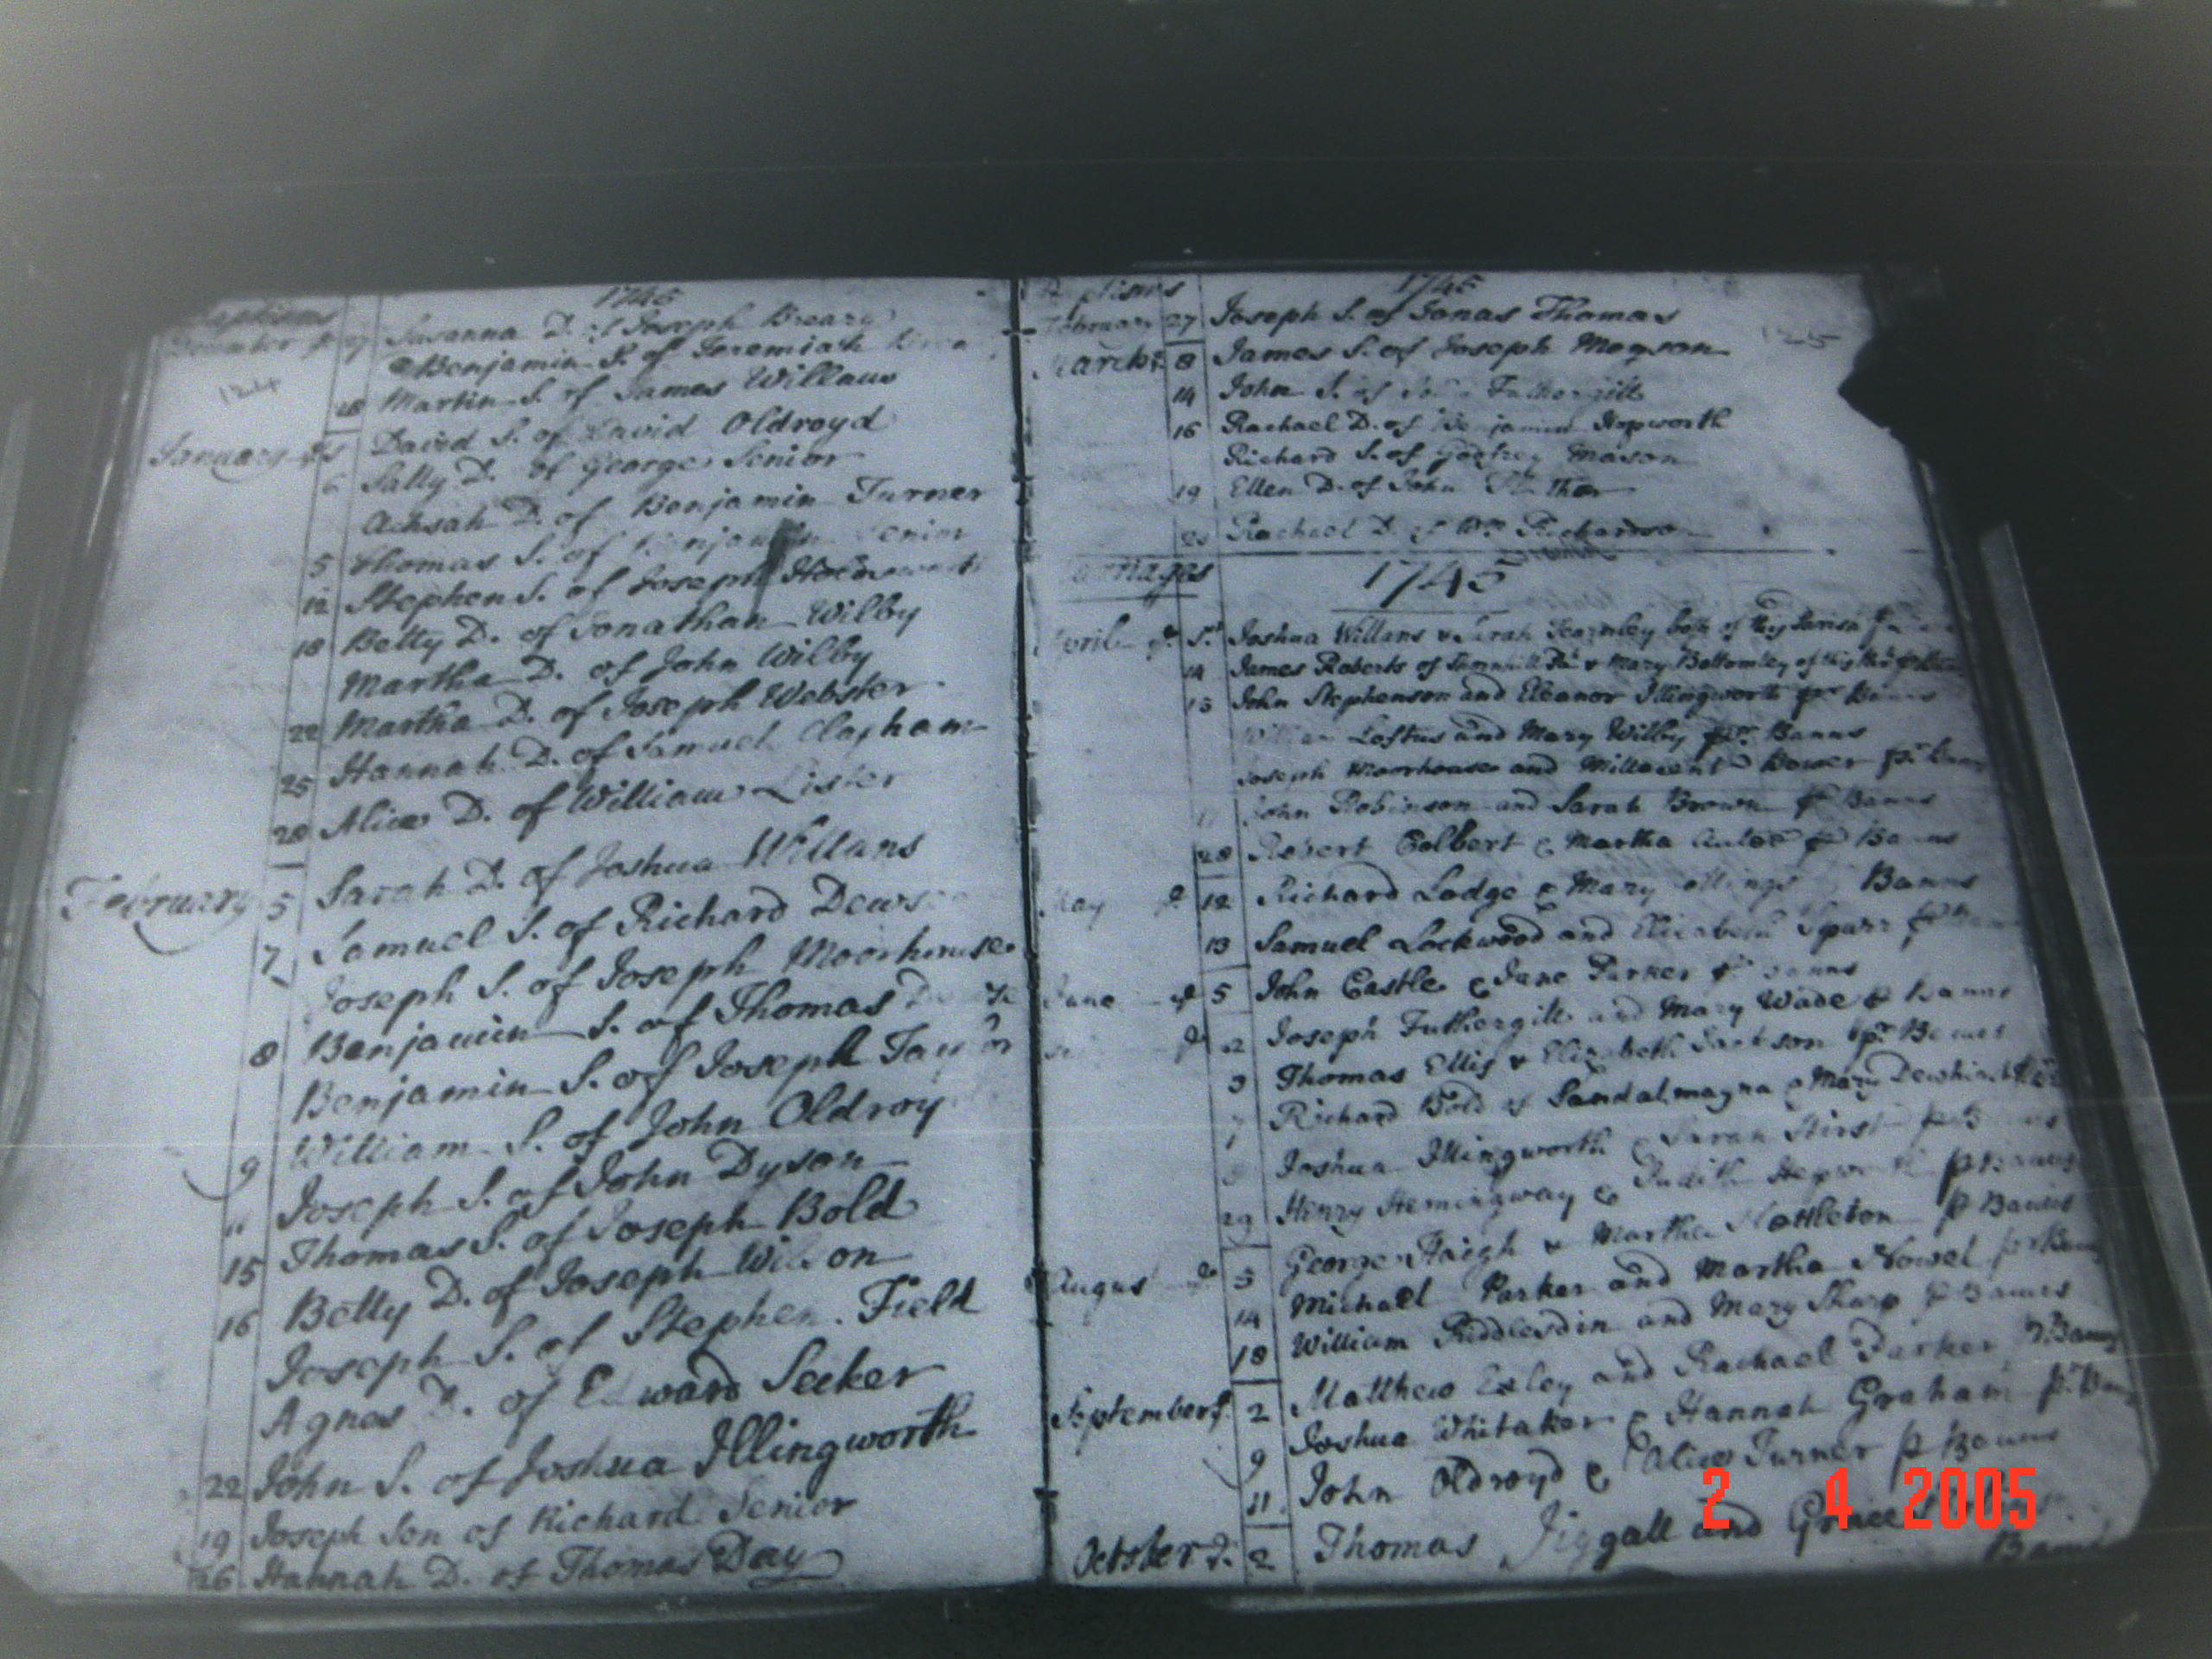 1745
Susanna D. of Joseph
Benjamin S. of Jeremiah
124
28 Martin S. of James Willans
January David S. of David Oldroyd
6 Sally D. of George Senior
Achsah D. of Benjamin Turner
5 Thomas S. of
12 Stephen S. of Joseph
18 Betty D. of Jonathan Wilby
Martha D. of John Wilby
22 Martha D. of Joseph Webster
25 Hannah D. of Samuel Clapham
28 Alice D. of William Lister
February 5 Sarah D. of Joshua Willans
7 Samuel S. of Richard
Joseph S. of Joseph Moorhouse
8 Benjamin S. of Thomas
Benjamin S. of Joseph Taylor
9 William S. of John
11 Joseph S. of John Dyson
15 Thomas S. of Joseph Bold
16 Betty D. of Joseph
Joseph S. of Stephen Field
Agnes D. of Edward Secker
22 John S. of Joshua Illingworth
19 Joseph Son of Richard Senior
26 Hannah D. of Thomas Day
1745
February 27 Joseph S. of Jonas Thomas
125
8 James S. of Joseph Mogson
14 John S. of
16 Rachael D. of Benjamin Hepworth
Richard S. of Godfrey Mason
19 Ellen D. of John
Rachael D. of Wm Richardson
1745
Joshua Willans & Sarah Fearnley both of this Parish
14 James Roberts of & Mary Bottomley of this
15 John Stephenson and Eleanor Illingworth pr Banns
Loftus and Mary Wilby pr Banns
Joseph Moorhouse and Millacent Bower
John Robinson and Sarah Brown pr Banns
28 Robert Colbert & Martha
May 12 Richard Lodge & Mary Banns
13 Samuel Lockwood and Elizabeth
June 5 John Castle & Jane Parker pr Banns
2 Joseph Futhergill and Mary Wade pr Banns
3 Thomas Ellis & Elizabeth Jackson pr Banns
7 Richard Bold of Sandalmagna & Mary
Joshua Illingworth & Sarah Hirst
29 Henry Hemingway & Judith
August 5 George Haigh & Martha Nattleton pr Banns
14 Michael Parker and Martha Nowel pr Banns
18 William Riddlesdin and Mary Sharp pr Banns
September 2 Matthew Exley and Rachael Parker pr Banns
9 Joshua Whitaker & Hannah Graham pr Banns
11 John Oldroyd & Alice Turner pr Banns
October 2 Thomas Jiggall and Grace
Banns
2 4 2005